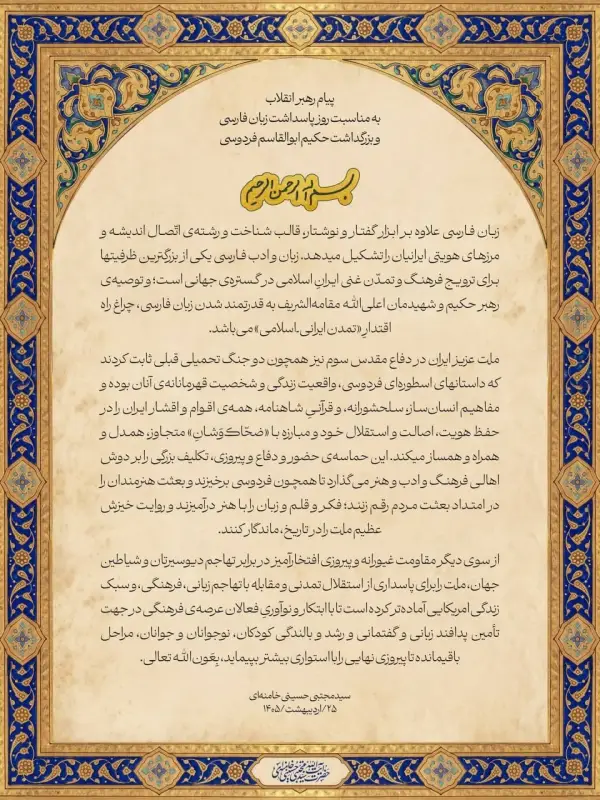 پیام رهبر انقلاب
به مناسبت روز پاسداشت زبان فارسی
و بزرگداشت حکیم ابوالقاسم فردوسی
بسم الله الرحمن الرحیم
زبان فارسی علاوه بر ابزار گفتار و نوشتار، قالب شناخت و رشته‌ی اتّصال اندیشه و
مرزهای هویتی ایرانیان را تشکیل میدهد. زبان و ادب فارسی یکی از بزرگترین ظرفیتها
برای ترویج فرهنگ و تمدّن غنی ایرانِ اسلامی در گستره‌ی جهانی است؛ و توصیه‌ی
رهبر حکیم و شهیدمان اعلی‌الله مقامه‌الشریف به قدرتمند شدن زبان فارسی، چراغ راه
اقتدارِ «تمدن ایرانی_اسلامی» می‌باشد.
ملت عزیز ایران در دفاع مقدس سوم نیز همچون دو جنگ تحمیلی قبلی ثابت کردند
که داستانهای اسطوره‌ای فردوسی، واقعیت زندگی و شخصیت قهرمانانه‌ی آنان بوده و
مفاهیم انسان‌ساز، سلحشورانه، و قرآنیِ شاهنامه، همه‌ی اقوام و اقشار ایران را در
حفظ هویت، اصالت و استقلال خود و مبارزه با «ضحّاک‌وَشانِ» متجاوز، همدل و
همراه و همساز میکند. این حماسه‌ی حضور و دفاع و پیروزی، تکلیف بزرگی را بر دوش
اهالی فرهنگ و ادب و هنر می‌گذارد تا همچون فردوسی برخیزند و بعثت هنرمندان را
در امتداد بعثت مردم رقم زنند؛ فکر و قلم و زبان را با هنر درآمیزند و روایت خیزش
عظیم ملت را در تاریخ، ماندگار کنند.
از سوی دیگر مقاومت غیورانه و پیروزی افتخارآمیز در برابر تهاجم دیوسیرتان و شیاطین
جهان، ملت را برای پاسداری از استقلال تمدنی و مقابله با تهاجم زبانی، فرهنگی، و سبک
زندگی امریکایی آماده‌تر کرده است تا با ابتکار و نوآوریِ فعالان عرصه‌ی فرهنگی در جهت
تأمین پدافند زبانی و گفتمانی و رشد و بالندگی کودکان، نوجوانان و جوانان، مراحل
باقیمانده تا پیروزی نهایی را با استواری بیشتر بپیماید، بِعَون‌الله تعالی.
سیدمجتبی حسینی خامنه‌ای
۲۵/اردیبهشت/۱۴۰۵